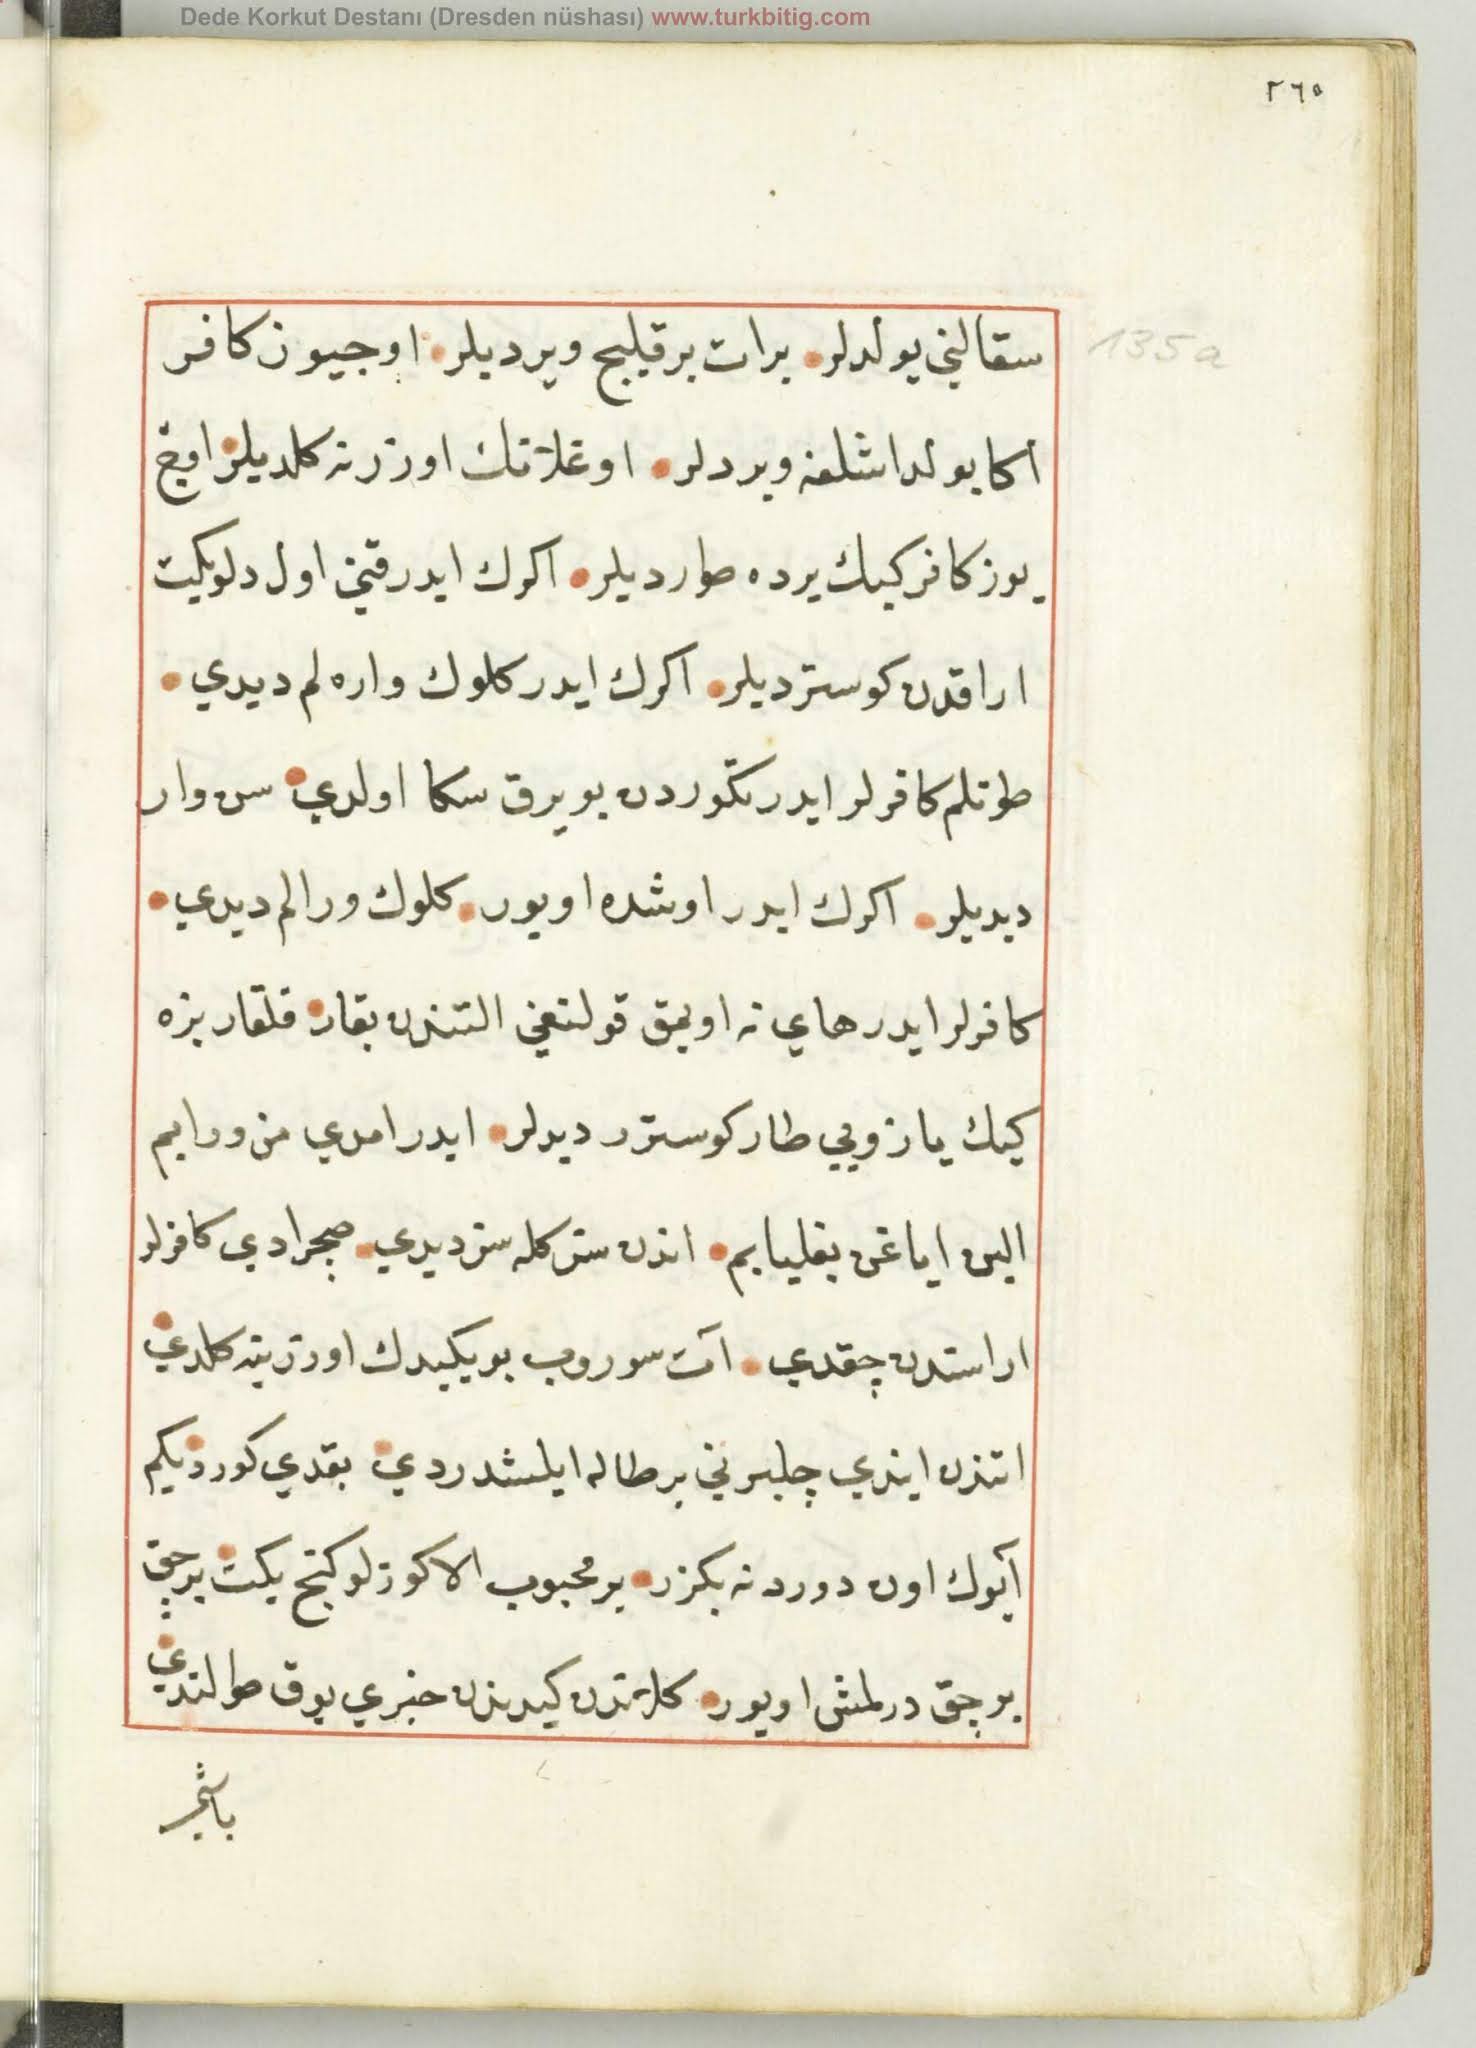 Dede Korkut Destanı (Dresden nüshası) www.turkbitig.com
٢٦٥
135a
سقالني يولدلر برات برقيليج ويرديلر اوجيوز كافر
اكا يولداشلغه ويردلر اوغلانك اوزرنه كلديلر اوچ
يوز كافر كيك يرده طورديلر اكرك ايدر قني اول دلويكيت
اراقدن كوسترديلر اكرك ايدر كلوك واره لم ديدي
طوتلم كافرلر ايدر تكوردن بويرق سكا اولدي سن وار
ديديلر اكرك ايدر اوشده اويور كلوك ورالم ديدي
كافرلر ايدر هاي نه اويمق قولتغني التندن بقار قلقار بزه
كيك يازويي طار كوسترر ديدلر ايدر امدي من ورايم
الين اياغن بغليايم اندن سز كله سز ديدي صچرادي كافرلر
اراستدن چقدي آت سوروب بو يكيدك اوزرينه كلدي
اتندن ايندي چلبرني بر طاله ايلشدردي بقدي كورديكم
آيوك اون دوردنه بكزر بر محبوب الا كوزلو كنج يكت برچق
برچق درلمش اويور كلاندن كيدندن خبري يوق طولندي
باشجر